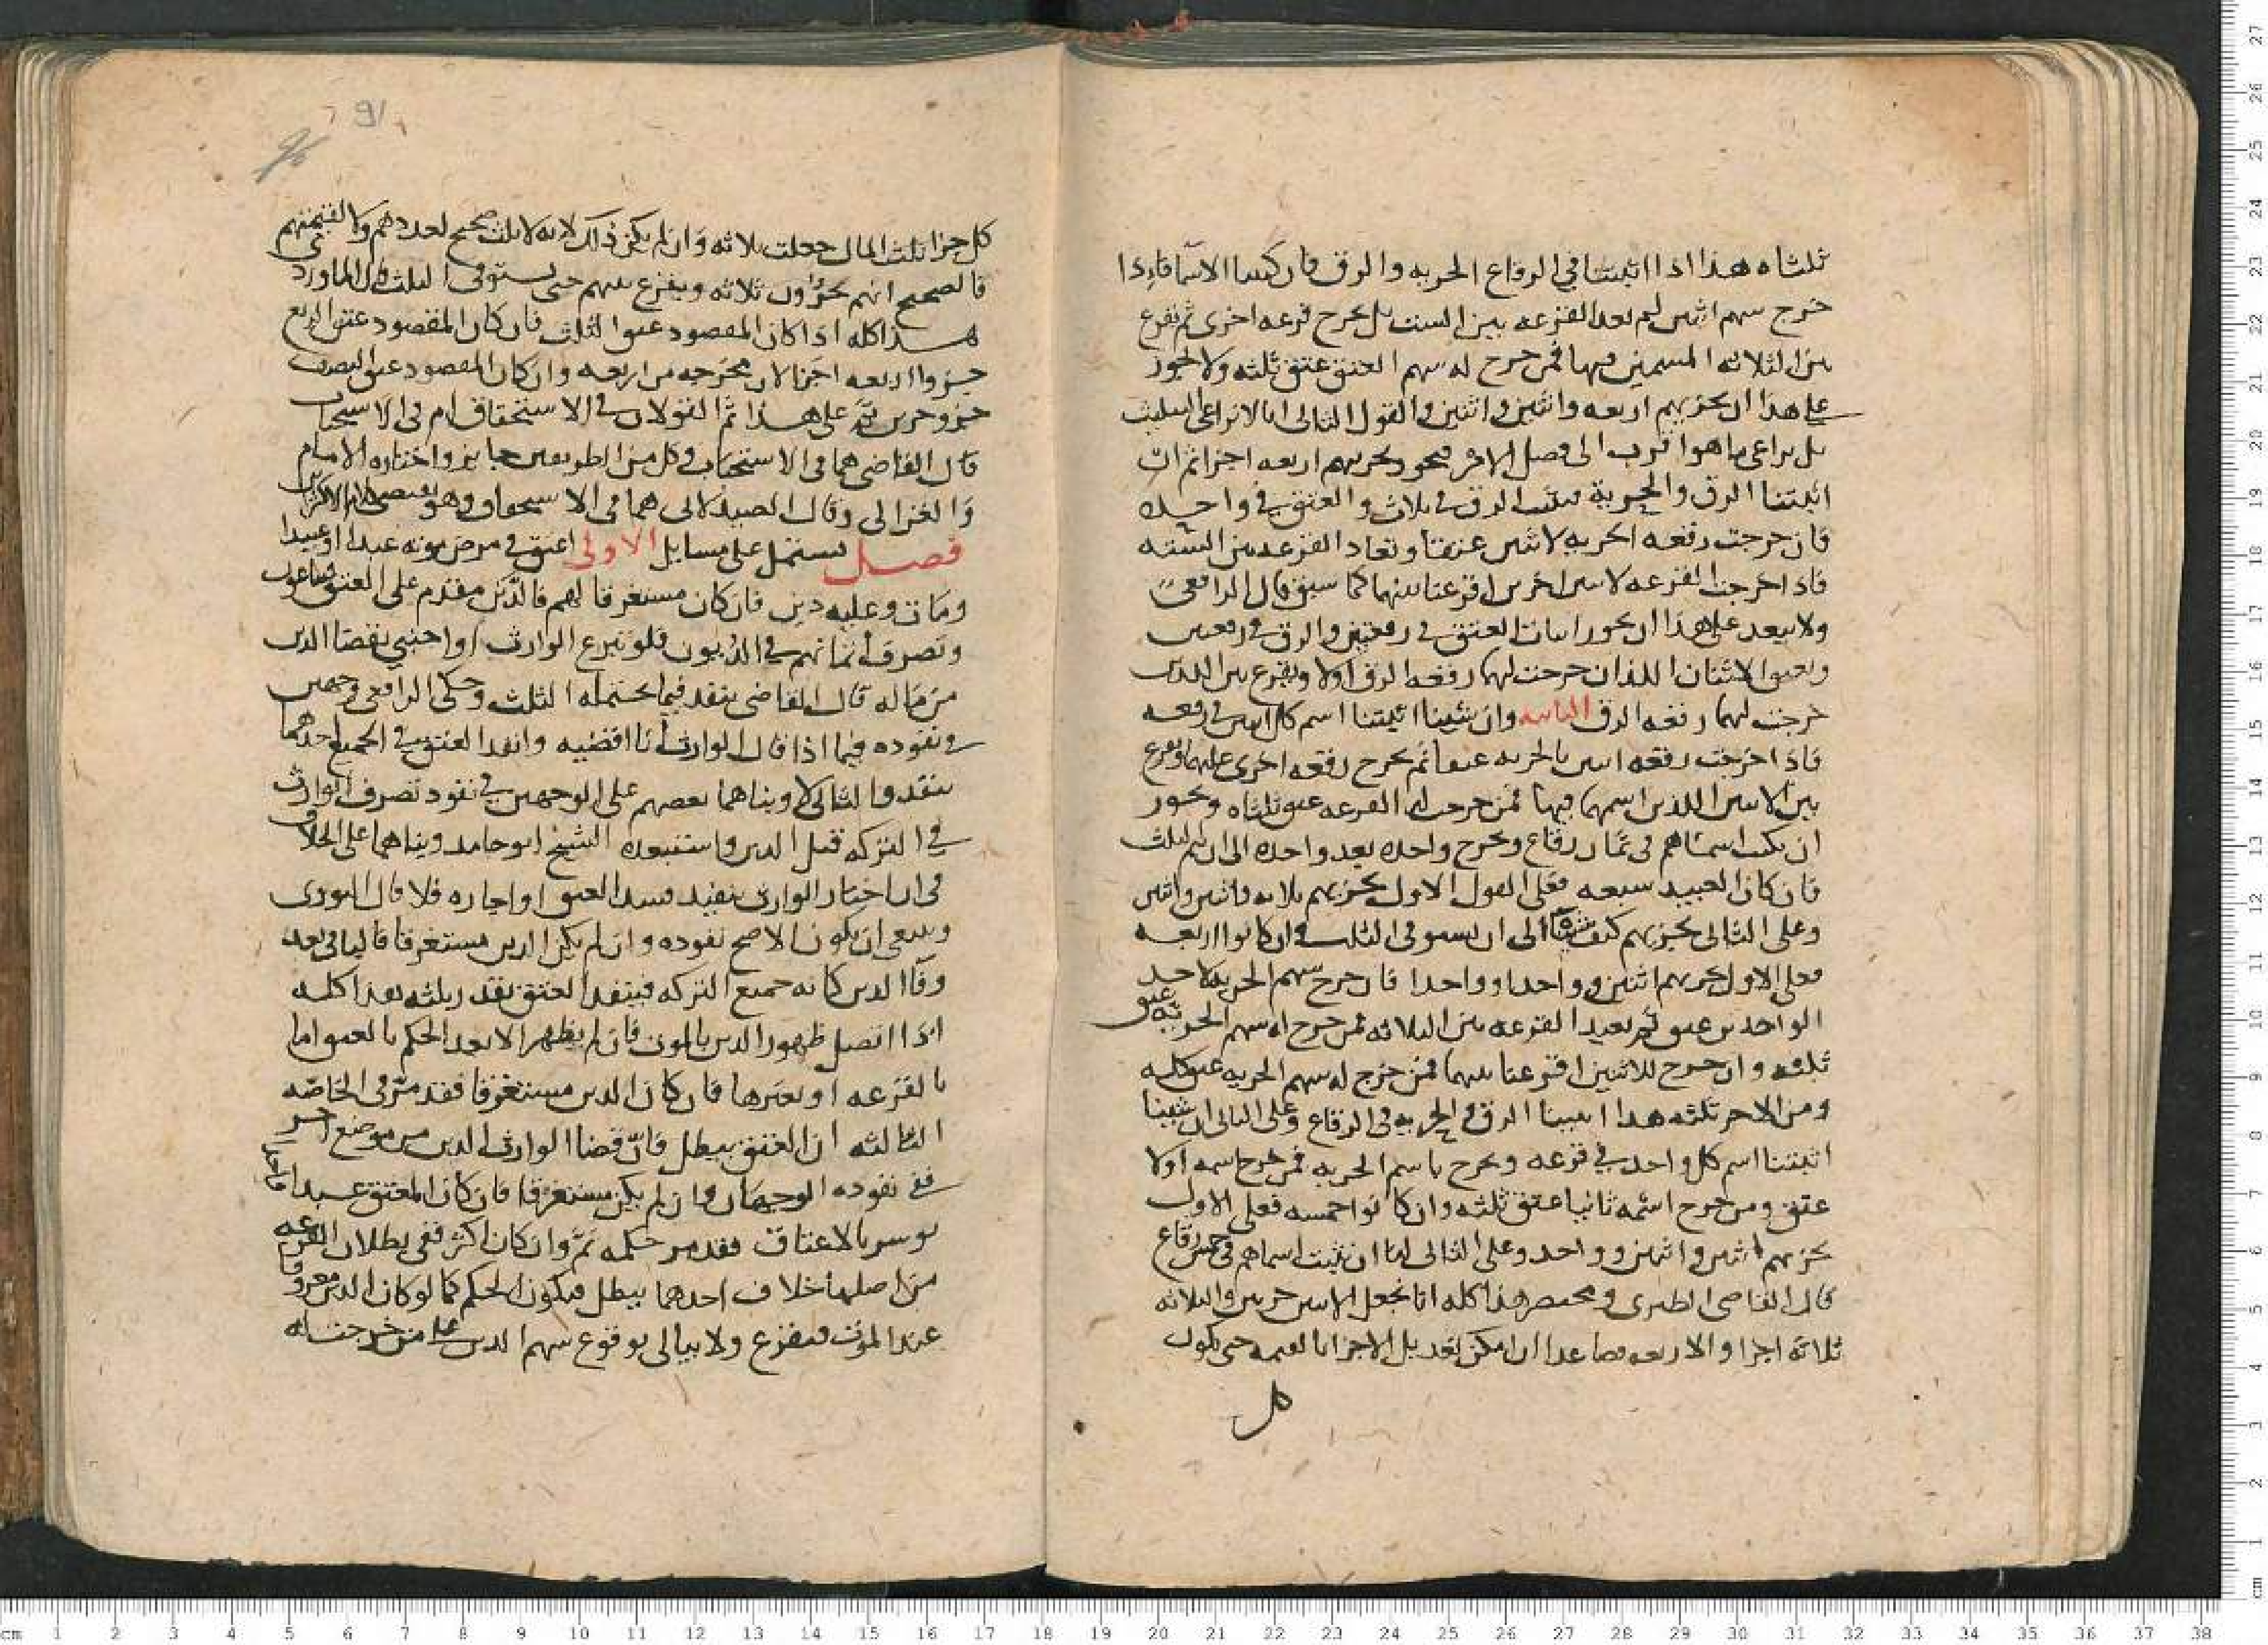 ثلثاه هذا اذا اثبتنا في الرقاع الحرية والرق فان كتبنا الاسما فاذا
خرج سهم اثنين لم تعد القرعه بين الست بل يخرج قرعه اخرى ثم يقرع
بين الثلاثه المسمين فيها فمن خرج له سهم العتق عتق ثلثه ولا يجوز
على هذا ان يجزيهم اربعه واثنين واثنين والقول الثاني انا لا نراعي التثليث
بل يراعى ما هو اقرب الى فصل الامر فيجوز تجزيهم اربعه اجزا ثم ان
اثبتنا الرق والحرية اثبتنا الرق في ثلاث والعتق في واحده
فان خرجت رقعه الحريه لاثنين عتقا وتعاد القرعه بين الستة
فاذا اخرجت القرعه لاثنين اخرين اقرعنا بينهما كما سبق قال الرافعي
ولا يبعد على هذا ان يجوز اثبات العتق في رقعتين والرق في رقعتين
ويعتق الاثنان اللذان خرجت لهما رقعه الرق اولا ويقرع بين اللذين
خرجت لهما رقعه الرق الثانيه وان شينا اثبتنا اسم كل اثنين في رقعه
فاذا اخرجت رقعه اثنين بالحريه عتقا ثم يخرج رقعه اخرى عليها ويقرع
بين الاثنين اللذين اسمهما فيها فمن خرجت له القرعه عتق ثلثاه ويجوز
ان يكتب اسماهم في ثمان رقاع ويخرج واحده بعد واحده الى ان يتم الثلث
فان كان العبيد سبعه فعلى القول الاول يجزيهم ثلاثه واثنين واثنين
وعلى الثاني يجزيهم كيف شينا الى ان يستوفى الثلث وان كانوا اربعه
فعلى الاول يجزيهم اثنين وواحدا وواحدا فان خرج سهم الحريه لاحد
الواحدين عتق ثم نعيد القرعه بين الثلاثه فمن خرج له سهم الحريه عتق
ثلثه وان خرج للاثنين اقرعنا بينهما فمن خرج له سهم الحريه عتق كله
ومن الاخر ثلثه هذا اذا اثبتنا الرق والحريه في الرقاع وعلى الثاني ان شينا
اثبتنا اسم كل واحد في قرعه ويخرج باسم الحريه فمن خرج اسمه اولا
عتق ومن خرج اسمه ثانيا عتق ثلثه وان كانوا خمسه فعلى الاول
يجزيهم اثنين واثنين وواحد وعلى الثاني لنا ان نثبت اسماهم في خمس رقاع
قال القاضي الطبري ومختصر هذا كله انا نجعل الاثنين جزين والثلاثه
ثلاثه اجزا والاربعه فصاعدا ان امكن تعديل الاجزا بالقيمه حتى يكون
كل
91
كل جزا ثلث المال جعلت ثلاثه وان لم يكن ذلك لانه لا ثلث صحيح لعددهم ولا لقيمتهم
فالصحيح انهم يجزؤون ثلاثه ويقرع بينهم حتى يستوفى الثلث قال الماوردي
هذا كله اذا كان المقصود عتق الثلث فان كان المقصود عتق الربع
جزووا اربعه اجزا لان مخرجه من اربعه وان كان المقصود عتق النصف
جزو جزين ثم على هذا ثم القولان في الاستحقاق ام في الاستحباب
قال القاضي هما في الاستحباب وكل من الطريقين جايز واختاره الامام
والغزالي وقال الصيدلاني هما في الاستحقاق وهو مقتضى كلام الاكثرين
فصل يشتمل على مسايل الاولى اعتق في مرض موته عبدا او عبيدا
ومات وعليه دين فان كان مستغرقا لهم فالدين مقدم على العتق فيباعون
وتصرف اثمانهم في الديون فلو تبرع الوارث او اجنبي بقضا الدين
من ماله قال القاضي ينفد فيما احتمله الثلث وحكى الرافعي وجهين
في نفوده فيما اذا قال الوارث انا اقضيه وانفد العتق في الجميع احدهما
ينفد والثاني لا وبناهما بعضهم على الوجهين في نفود تصرف الوارث
في التركه قبل الدين واستبعده الشيخ ابو حامد وبناهما على الخلاف
في ان اختيار الوارث تنفيد مبتدا العتق او اجازه فلا قال النووي
وينبغي ان يكون الاصح نفوده وان لم يكن الدين مستغرقا فالباقي بعد
وفا الدين كانه جميع التركه فينفد العتق بقدر ثلثه هذا كله
اذا اتصل ظهور الدين بالموت فان لم يظهر الا بعد الحكم بالعتق اما
بالقرعه او بغيرها فان كان الدين مستغرقا فقد مر في الخاصه
الثالثه ان العتق يبطل فان قضا الوارث الدين من موضع اخر
ففي نفوده الوجهان وان لم يكن مستغرقا فان كان المعتق عبدا واحدا
يوسر بالاعتاق فقد مر حكمه ثم وان كان اكثر ففي بطلان القرعه
من اصلها خلاف احدهما يبطل فيكون الحكم كما لو كان الدين معروفا
عند الموت فيقرع ولا يبالي بوقوع سهم الدين على من خرجت له